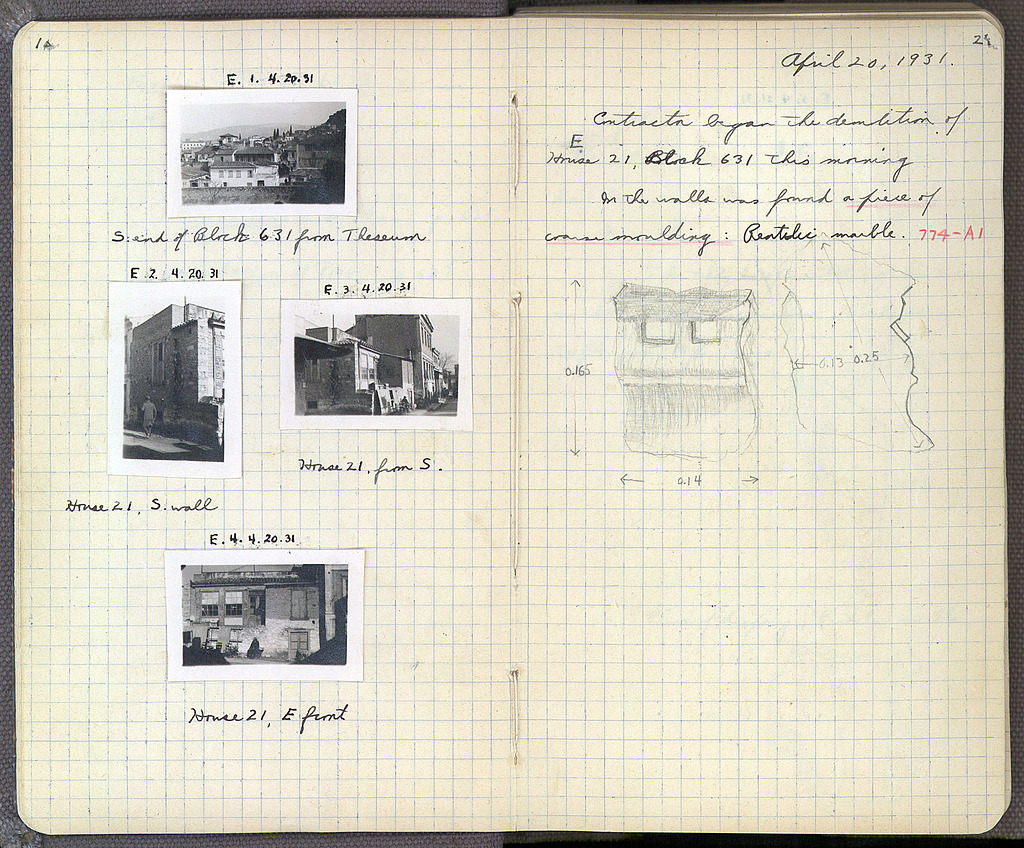 1
E. 1. 4.20.31
S. end of Block 631 from Theseum
E. 2. 4.20.31
E. 3. 4.20.31
House 21, from S.
House 21, S. wall
E. 4. 4.20.31
House 21, E front
2
April 20, 1931.
Contractor began the demolition of
E
House 21, Block 631 this morning
In the walls was found a piece of
coarse moulding: Pentelic marble. 774-A1
0.165
0.13
0.25
0.14